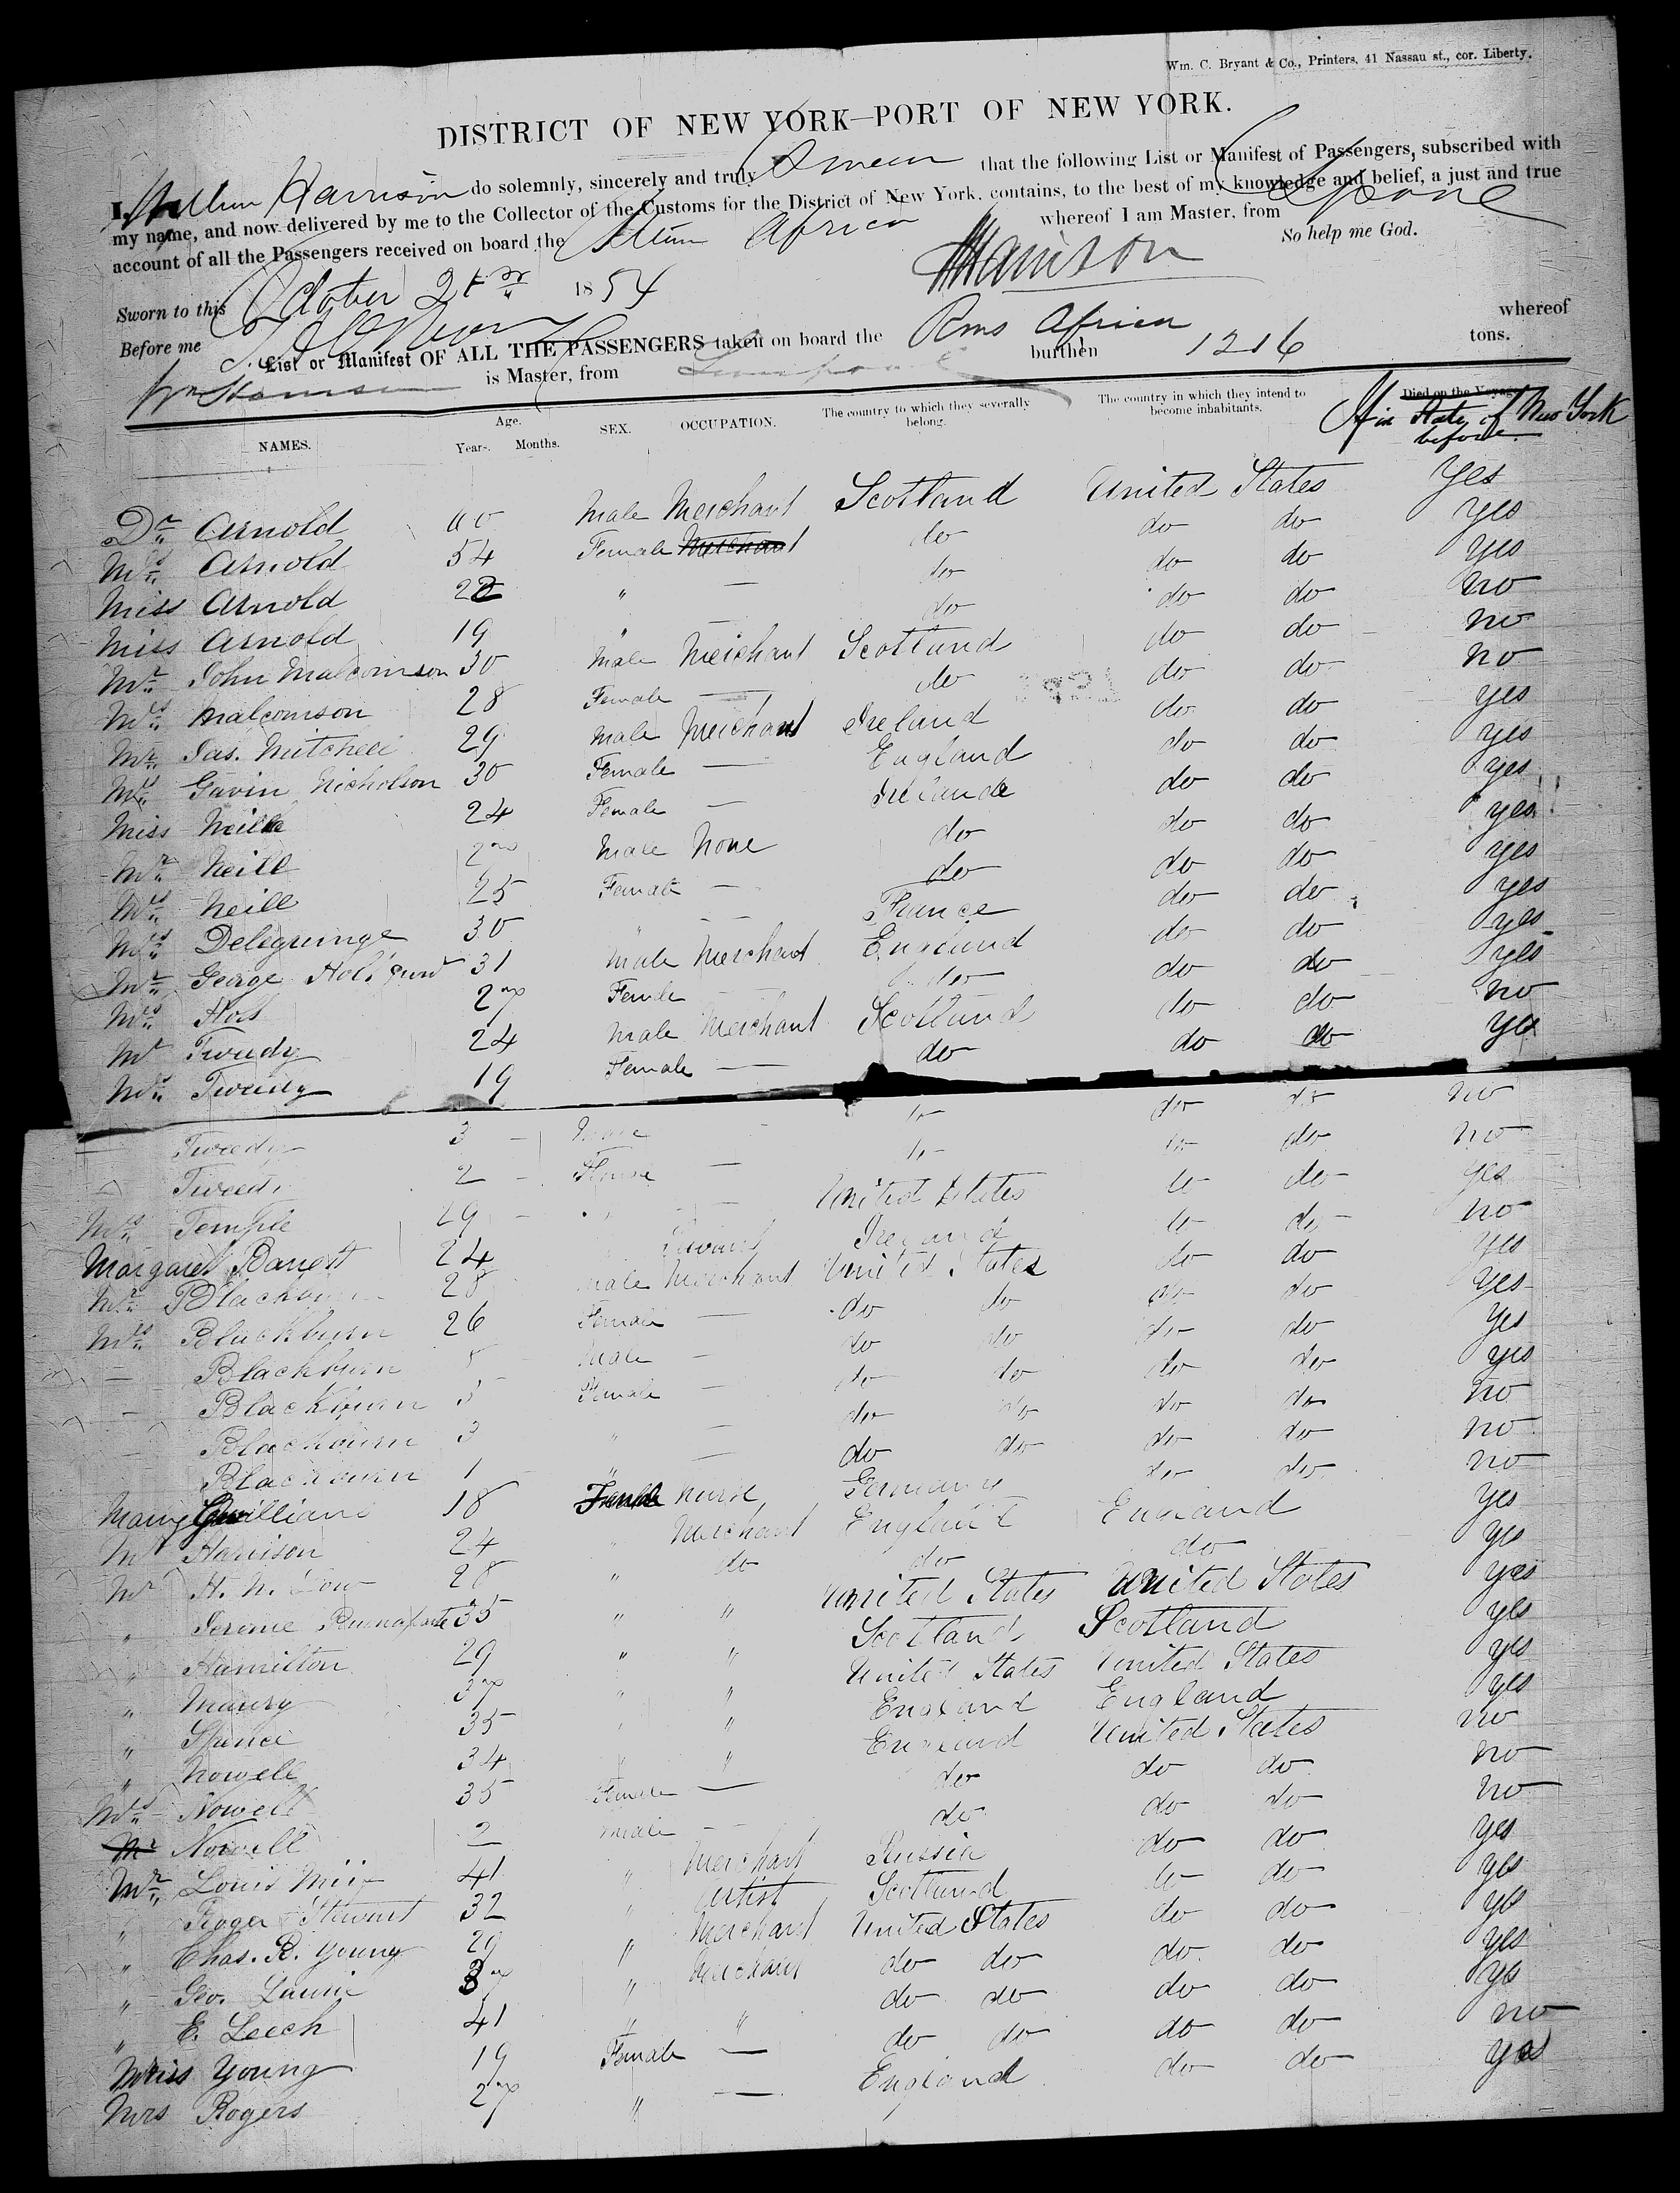 Wm. C. Bryant & Co., Printers, 41 Nassau st., cor. Liberty.
DISTRICT OF NEW YORK—PORT OF NEW YORK.
I, William Harrison do solemnly, sincerely and truly Swear that the following List or Manifest of Passengers, subscribed with
my name, and now delivered by me to the Collector of the Customs for the District of New York, contains, to the best of my knowledge and belief, a just and true
account of all the Passengers received on board the Africa whereof I am Master, from
So help me God.
Harrison
Sworn to this October 21st 1854
Before me
List or Manifest OF ALL THE PASSENGERS taken on board the Rms Africa whereof
Wm Harrison is Master, from Liverpool burthen 1216 tons.
NAMES. Age. Years. Months. SEX. OCCUPATION. The country to which they severally belong. The country in which they intend to become inhabitants. Died on the Voyage
If in State of New York before
Dr Arnold Male Merchant Scotland United States Yes
Mrs Arnold 54 Female Merchant do do do Yes
Miss Arnold 22 " — do do do Yes
Miss Arnold 19 " — do do do no
Mr John Malcomson 30 Male Merchant Scotland do do no
Mrs Malcomson 28 Female — do do do no
Mr Jas. Mitchell 29 Male Merchant Ireland do do yes
Mrs Gavin Nicholson 30 Female — England do do yes
Miss Neill 24 Female — Ireland do do yes
Mr Neill 27 Male None do do do yes
Mrs Neill 25 Female — do do do yes
Mrs 30 — France do do yes
Mr George Holt 31 Male Merchant England do do yes
Mrs Holt 27 Female — do do do yes
Mr Tweedy 24 Male Merchant Scotland do do no
Mrs Tweedy 19 Female — do do do yes
Tweedy 3 Male — do do do no
Tweedy 2 Female — do do do no
Mrs Temple 29 " — United States do do yes
Margaret Barrett 24 Servant Ireland do do no
Mr Blackburn 28 Male Merchant United States do do yes
Mrs Blackburn 26 Female — do do do do yes
— Blackburn Male — do do do do yes
— Blackburn 5 Female — do do do do yes
Blackburn 3 " — do do do do no
Blackburn 1 " — do do do do no
Mary 18 Female nurse Germany do do no
Mr Harrison 24 " Merchant England England yes
Mr H. N. Low 28 " do do do yes
" Jerome Buonaparte 35 " " United States United States yes
" Hamilton 29 " " Scotland Scotland yes
" Maury 37 " " United States United States yes
" Spence 35 " " England England yes
" Nowell 34 " " England United States no
Mrs Nowell 35 Female — do do do no
Mr Nowell 2 male — do do do no
Mr Louis 41 " Merchant Russia do do yes
" Roger Stewart 32 " Artist Scotland do do yes
" Chas. R. Young 29 " Merchant United States do do yes
" Geo. Laurie 37 " Merchant do do do do yes
" E. Leech 41 " " do do do do yes
Miss Young 19 Female — do do do do no
Mrs Rogers 27 " — England do do yes